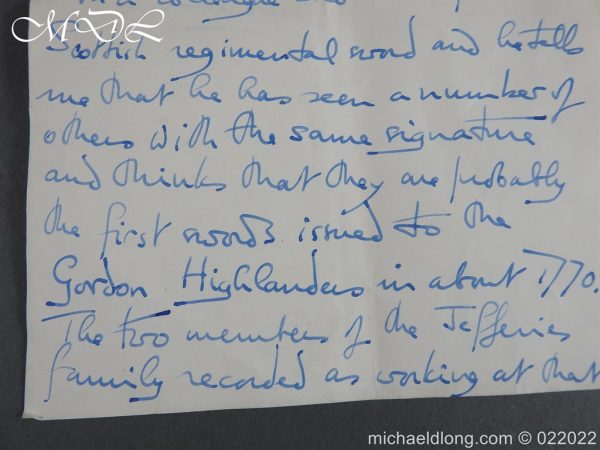 MDL
Scottish regimental sword and he tells
me that he has seen a number of
others with the same signature
and thinks that they are probably
the first swords issued to the
Gordon Highlanders in about 1770.
The two members of the Jefferies
family recorded as working at that
michaeldlong.com © 022022